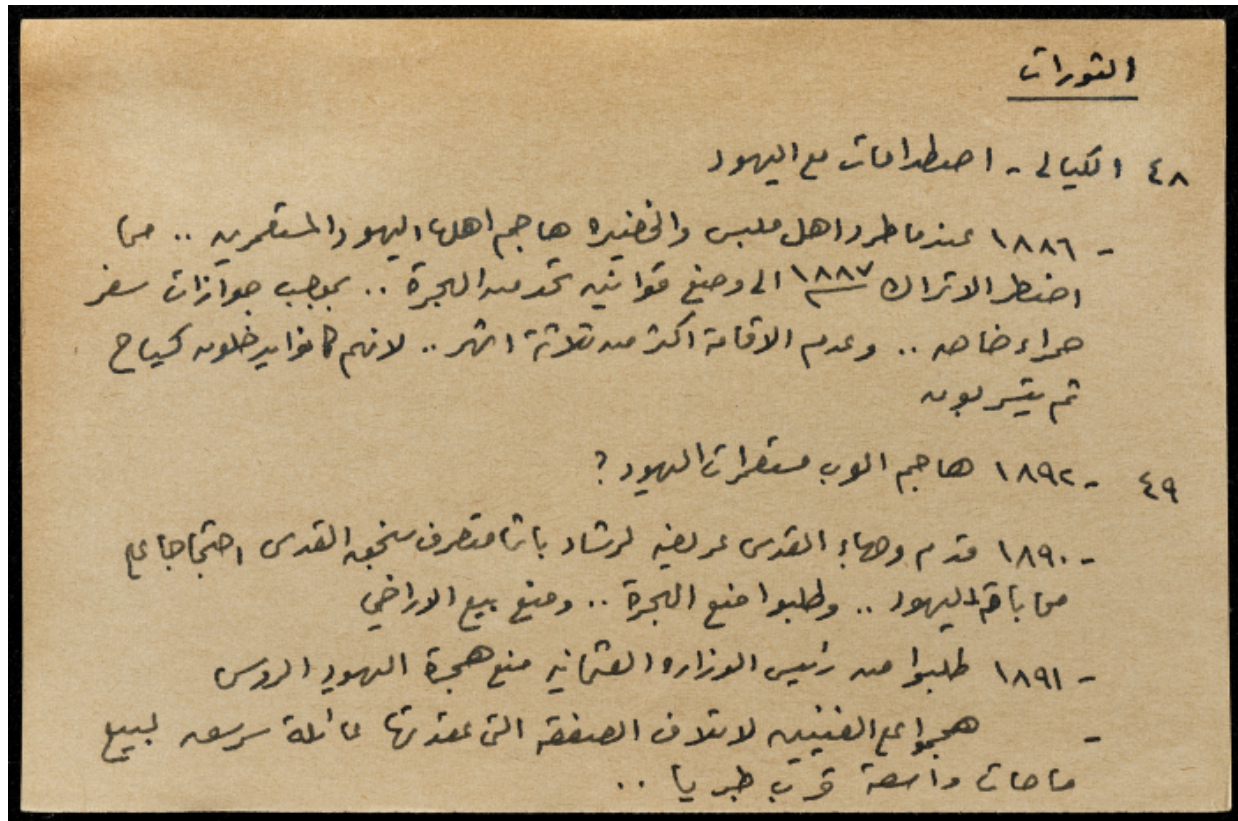 الثورات
٤٨ الكيالي - اصطدامات مع اليهود
- ١٨٨٦ عندما طرد اهل ملبس والخضيره هاجم اهلها اليهود المستعمرين .. مما
اضطر الاتراك ١٨٨٧ الى وضع قوانين تحد من الهجرة .. بموجب جوازات سفر
حمراء خاصه .. وعدم الاقامة اكثر من ثلاثة اشهر .. لانهم كانوا يدخلون كسياح
ثم يتسربون
٤٩ - ١٨٩٢ هاجم العرب مستعمرات اليهود ؟
- ١٨٩٠ قدم وجهاء القدس عريضه لرشاد باشا متصرف سنجق القدس احتجاجا على
محاباته لليهود .. وطلبوا منع الهجرة .. ومنع بيع الاراضي
- ١٨٩١ طلبوا من رئيس الوزاره العثمانيه منع هجرة اليهود الروس
- هجموا على الفنيين لاتلاف الصفقه التي عقدتها عائلة سرسق لبيع
مساحات واسعة قرب طبريا ..